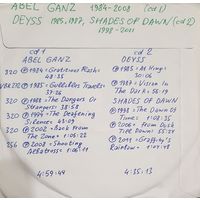 ABEL GANZ 1984-2008 (cd 1)
DEYSS 1985, 1987, SHADES OF DAWN (cd 2)
1998-2011
cd 1
ABEL GANZ
320 1984 = Gratuitous Flash =
48:35
1985 = Gullibles Travels =
37:26
320 1988 = The Dangers Of
Strangers = 38:58
320 1994 = The Deafening
Silence = 63:09
320 2002 = Back From
The Zone = 1:08:22
256 2008 = Shooting
Albatross = 1:06:11
4:59:49
cd 2
DEYSS
1985 = At King =
30:06
1987 = Vision In
The Dark = 56:19
SHADES OF DAWN
1998 = The Dawn Of
Time = 1:08:35
2006 = From Dusk
Till Dawn = 55:21
2011 = Graffity's
Rainbow = 1:04:48
4:35:13